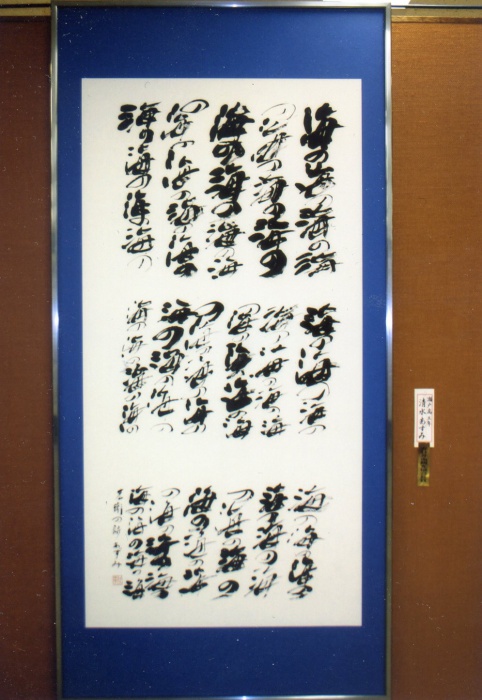 海の海の海の海
の海の海の海の
海の海の海の海
の海の海の海の海
海の海の海の海の
海の海の海の
海の海の海の海
の海の海の海
の海の海の海の
海の海の海の
海の海の海の海の
海の海の海
の海の海の海
の海の海の
海の海の海
の海の海の海
海の海の海の海
の詩 あずみ
清水あずみ